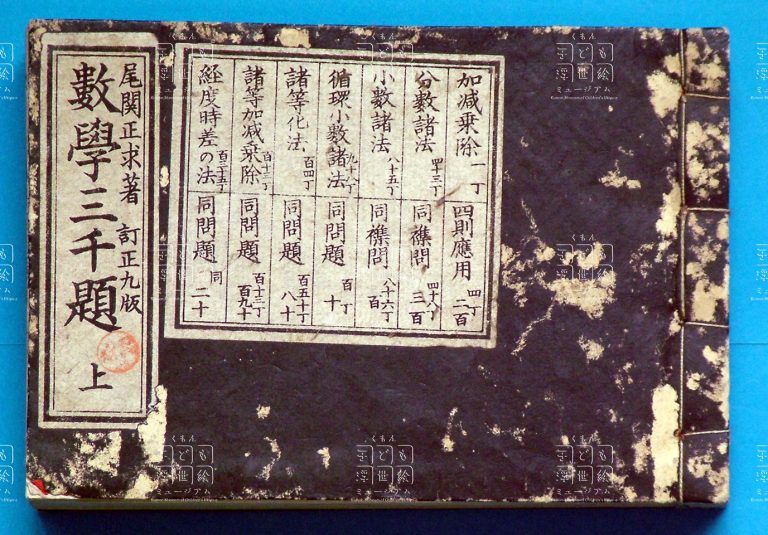 尾関正求著 訂正九版
數學三千題
上
加減乗除 一丁
四則應用 四丁 二百
分數諸法 四十三丁
同襍問 四十八丁 三百
小數諸法 八十五丁
同襍問 八十六丁 百
循環小數諸法 九十八丁
同問題 百丁 十
諸等化法 百四丁
同問題 百五十丁 八十
諸等加減乗除 百十二丁
同問題 百十三丁 百九十
経度時差の法 百三十五丁
同問題 同 二十
くもん
子ども
浮世絵
ミュージアム